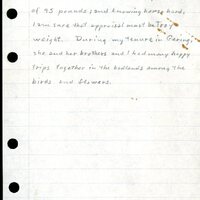 of 95 pounds; and knowing horse bards,
I am sure that appraisal must be Troy
weight. During my tenure in Gering,
she and her brothers and I had many happy
trips together in the badlands among the
birds and flowers.